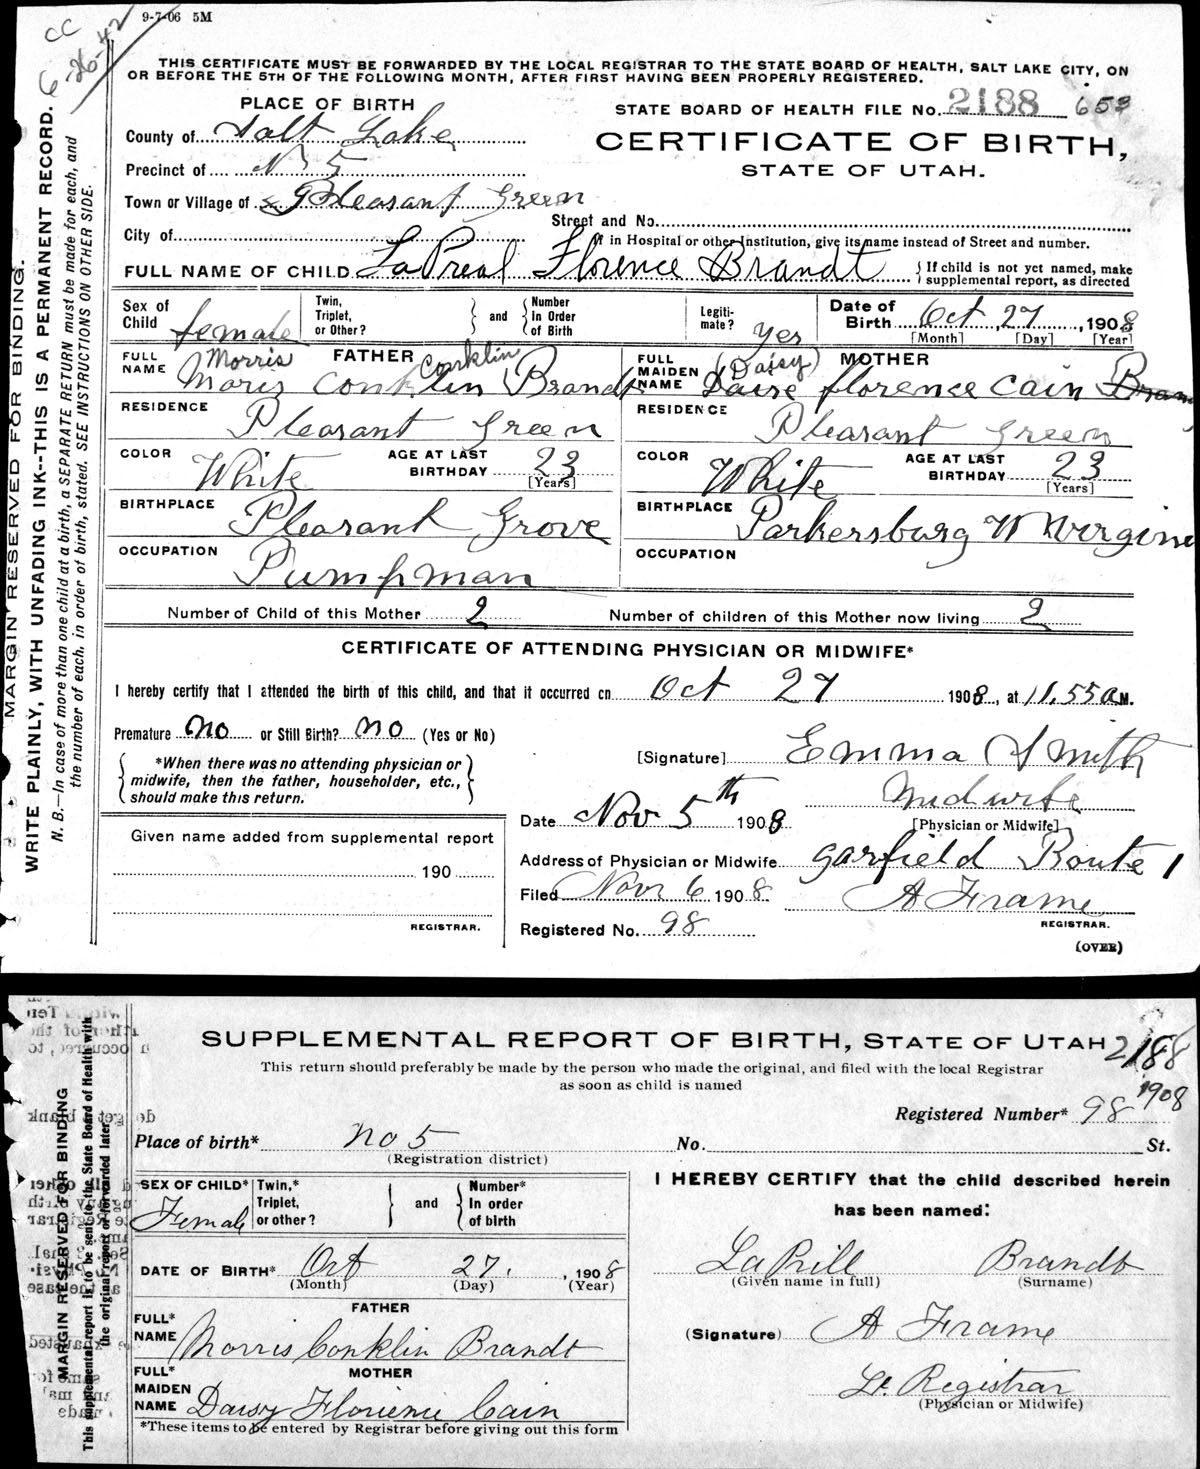 9-7-06 5M
CC
6-26-42
THIS CERTIFICATE MUST BE FORWARDED BY THE LOCAL REGISTRAR TO THE STATE BOARD OF HEALTH, SALT LAKE CITY, ON
OR BEFORE THE 5TH OF THE FOLLOWING MONTH, AFTER FIRST HAVING BEEN PROPERLY REGISTERED.
MARGIN RESERVED FOR BINDING.
WRITE PLAINLY, WITH UNFADING INK--THIS IS A PERMANENT RECORD.
N. B.—In case of more than one child at a birth, a SEPARATE RETURN must be made for each, and
the number of each, in order of birth, stated. SEE INSTRUCTIONS ON OTHER SIDE.
PLACE OF BIRTH
STATE BOARD OF HEALTH FILE No. 2188 653
County of Salt Lake
CERTIFICATE OF BIRTH,
Precinct of No 5
STATE OF UTAH.
Town or Village of Pleasant Green
Street and No.
City of
If in Hospital or other Institution, give its name instead of Street and number.
FULL NAME OF CHILD LaPreal Florence Brandt { If child is not yet named, make
supplemental report, as directed
Sex of Child female Twin, Triplet, or Other? } and { Number In Order of Birth Legiti- mate? Yes Date of Birth Oct 27, 1908
[Month] [Day] [Year]
FATHER MOTHER
FULL NAME Morris Conklin FULL MAIDEN NAME (Daisy)
Moris Conklin Brandt Daise florence Cain Bran
RESIDENCE Pleasant Green RESIDENCE Pleasant Green
COLOR White AGE AT LAST BIRTHDAY 23 [Years] COLOR White AGE AT LAST BIRTHDAY 23 [Years]
BIRTHPLACE Pleasant Grove BIRTHPLACE Parkersburg W Virgini
OCCUPATION Pumpman OCCUPATION
Number of Child of this Mother 2 Number of children of this Mother now living 2
CERTIFICATE OF ATTENDING PHYSICIAN OR MIDWIFE*
I hereby certify that I attended the birth of this child, and that it occurred on Oct 27 1908, at 11.55 a M.
Premature no or Still Birth? no (Yes or No)
[Signature] Emma Smith
{ *When there was no attending physician or
midwife, then the father, householder, etc.,
should make this return. }
Midwife
Date Nov 5th 1908 [Physician or Midwife]
Given name added from supplemental report
190
REGISTRAR.
Address of Physician or Midwife garfield Route 1
Filed Nov 6 1908 A Frame
Registered No. 98 REGISTRAR.
(OVER)
SUPPLEMENTAL REPORT OF BIRTH, STATE OF UTAH 2188
1908
This return should preferably be made by the person who made the original, and filed with the local Registrar
as soon as child is named
MARGIN RESERVED FOR BINDING
This supplemental report is to be sent to the State Board of Health with
the original report or forwarded later
Registered Number* 98
Place of birth* no 5 No. St.
(Registration district)
SEX OF CHILD* Female Twin,* Triplet, or other? } and { Number* In order of birth
DATE OF BIRTH* Oct 27, 1908
(Month) (Day) (Year)
FATHER
FULL* NAME Morris Conklin Brandt
MOTHER
FULL* MAIDEN NAME Daisy Florience Cain
*These items to be entered by Registrar before giving out this form
I HEREBY CERTIFY that the child described herein
has been named:
LaRill Brandt
(Given name in full) (Surname)
(Signature) A Frame
Lt. Registrar
(Physician or Midwife)